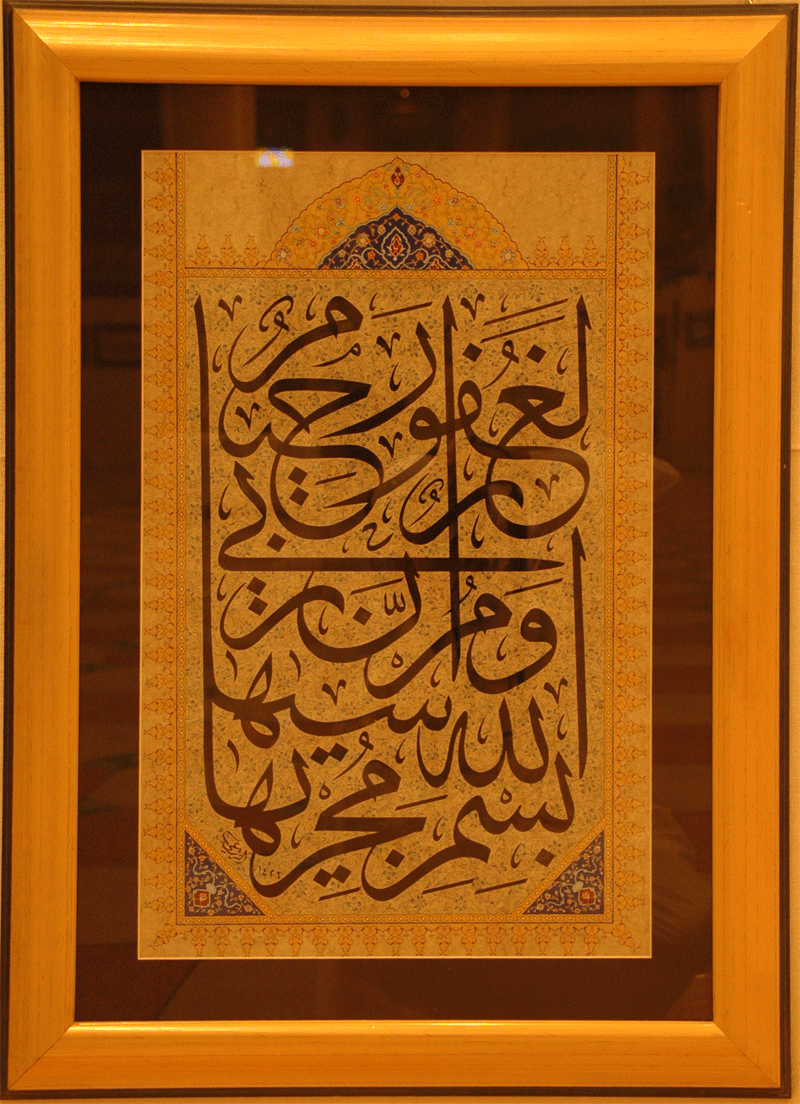 بِسْمِ اللّٰهِ مَجْرٰيهَا
وَمُرْسٰيهَا اِنَّ رَبِّي
لَغَفُورٌ رَحِيمٌ
١٤٢٦